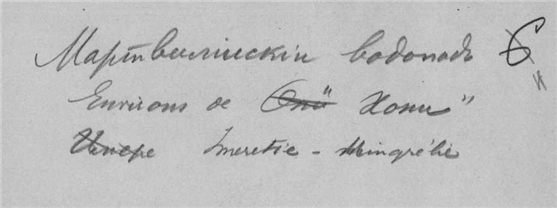 Мартвилійскій водопадъ
Environs de Они „Хони"
Imeretie - Mingrélie